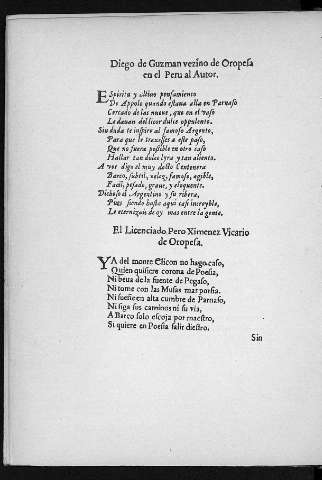 Diego de Guzman vezino de Oropesa
en el Peru al Autor.
ESpiritu y vltimo pensamiento
De Appolo quando estaua alla en Parnaso
Cercado de las nueue, que en el vaso
Le dauan del licor dulce oppulento.
Sin duda te inspiro al famoso Argento,
Para que le truxesses a este paso,
Que no fuera possible en otro caso
Hallar tan dulce lyra y tan aliento.
A vos digo el muy docto Centenera
Barco, subtil, veloz, famoso, agible,
Facil, pesado, graue, y eloquente.
Dichoso el Argentino y su ribera,
Pues siendo hasta aqui casi increyble,
Le eternizan de oy mas entre la gente.
El Licenciado Pero Ximenez Vicario
de Oropesa.
YA del monte Elicon no hago caso,
Quien quisiere corona de Poesia,
Ni beua de la fuente de Pegaso,
Ni tome con las Musas mas porfia.
Ni sueñe en alta cumbre de Parnaso,
Ni siga sus caminos ni su via,
A Barco solo escoja por maestro,
Si quiere en Poesia salir diestro.
Sin